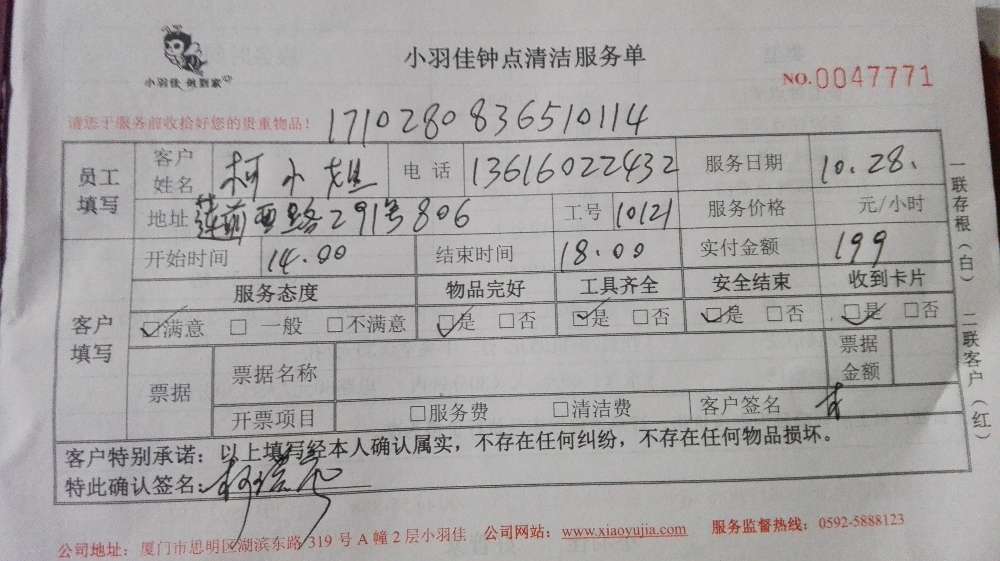 小羽佳 做到家
小羽佳钟点清洁服务单
NO.0047771
请您于服务前收拾好您的贵重物品！ 1710280836510114
员工填写 客户姓名 柯小姐 电话 13616022432 服务日期 10.28.
地址 莲前西路291号806 工号 10121 服务价格 元/小时
客户填写 开始时间 14.00 结束时间 18.00 实付金额 199
服务态度 物品完好 工具齐全 安全结束 收到卡片
☑满意 □一般 □不满意 ☑是 □否 ☑是 □否 ☑是 □否 ☑是 □否
票据 票据名称 票据金额
开票项目 □服务费 □清洁费 客户签名
客户特别承诺：以上填写经本人确认属实，不存在任何纠纷，不存在任何物品损坏。
特此确认签名：柯
一联存根（白） 二联客户（红）
公司地址：厦门市思明区湖滨东路319号A幢2层小羽佳 公司网站：www.xiaoyujia.com 服务监督热线：0592-5888123